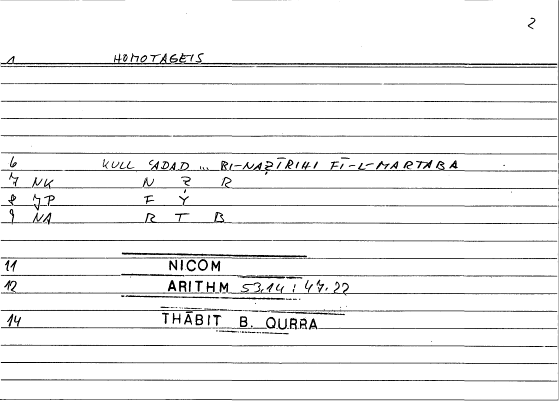 2
1 HOMOTAGEIS
6 KULL ʿADAD ... BI-NAẒĪRIHI FĪ-L-MARTABA
7 NK N Ẓ R
8 JP F Y
9 NA R T B
11 NICOM
12 ARITHM 53,14 : 47.22
14 THĀBIT B. QURRA